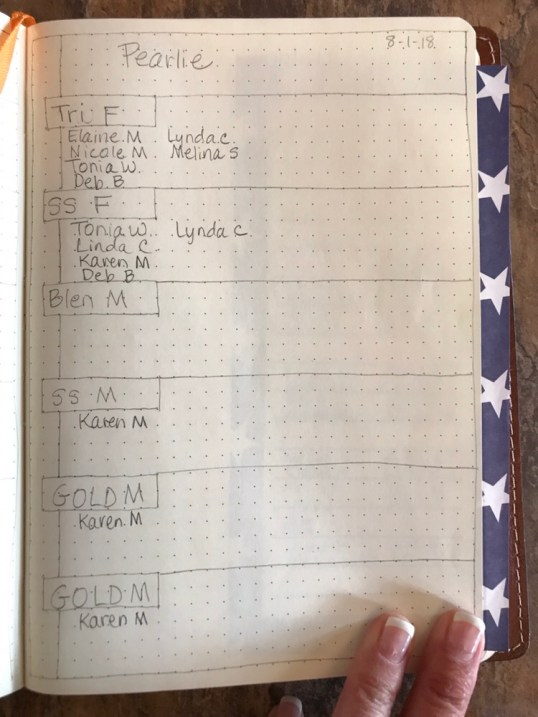 8-1-18
Pearlie
Tri F
Elaine M Lynda C.
Nicole M Melina S
Tonia W.
Deb B
SS F
Tonia W. Lynda C.
Linda C.
Karen M
Deb B
Blen M
SS M
Karen M
GOLD M
Karen M
GOLD M
Karen M